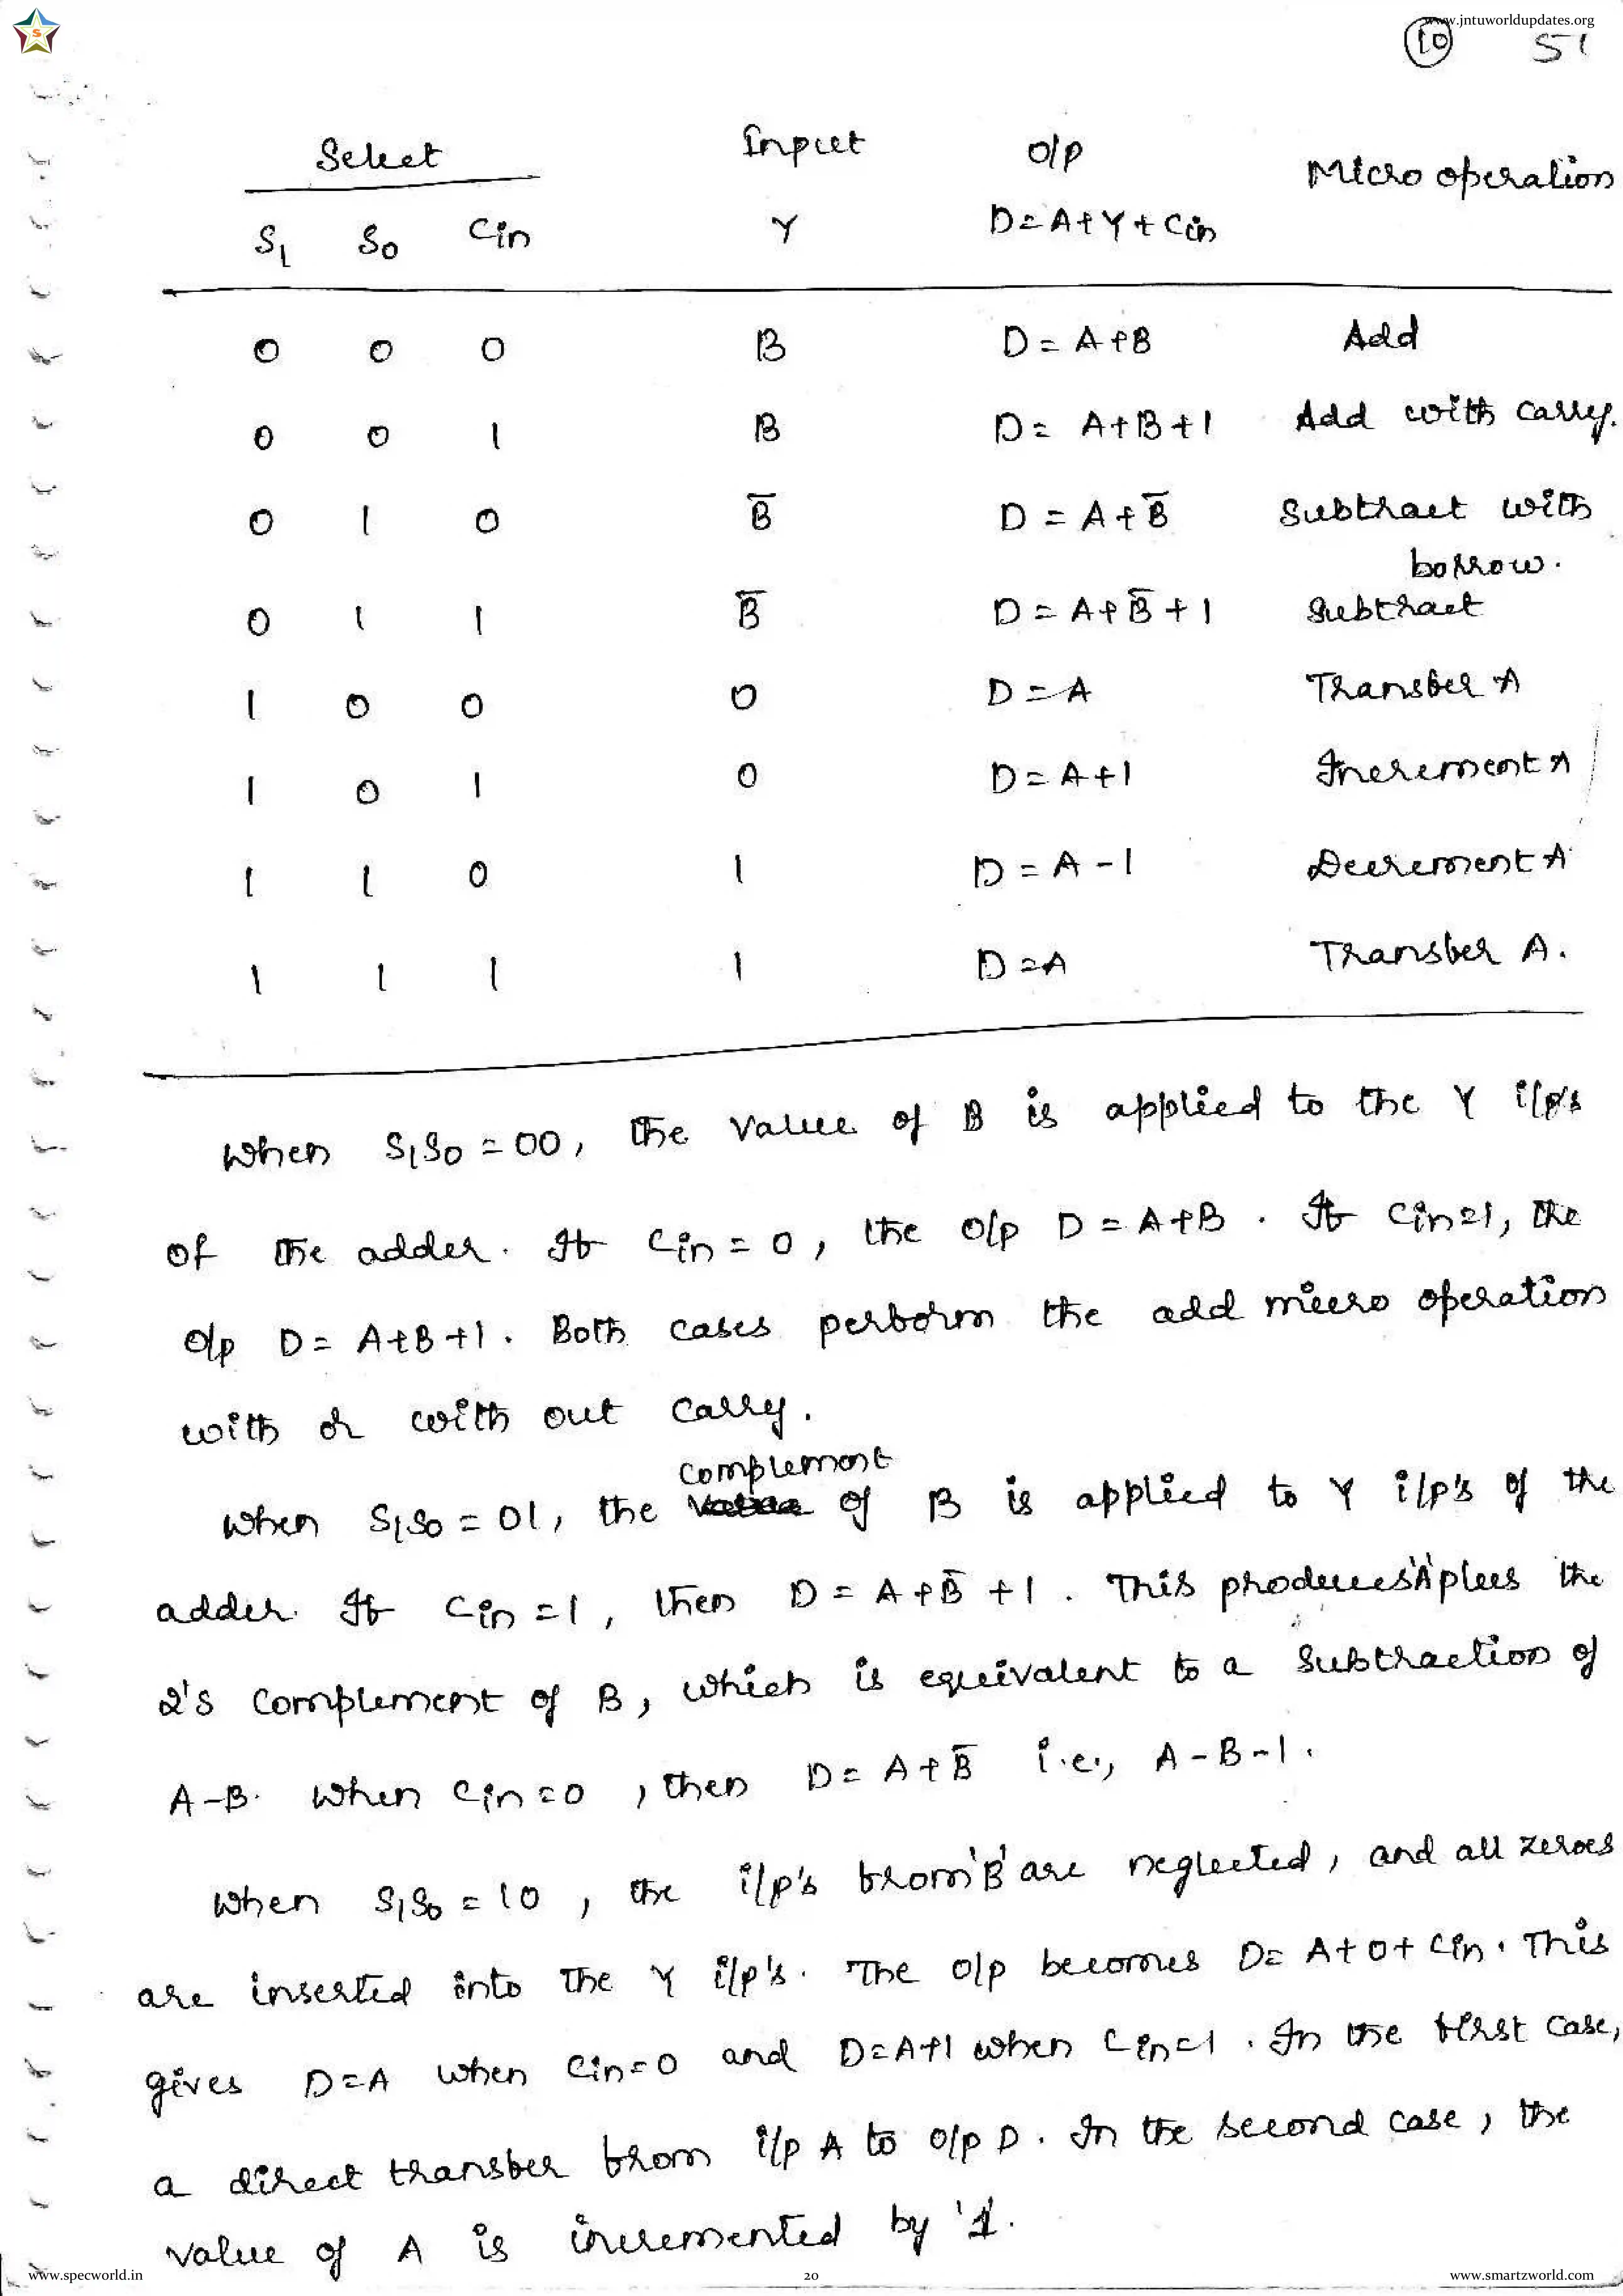 www.jntuworldupdates.org
S
10 51
Select Input O/p Micro operation
S1 S0 Cin Y D=A+Y+Cin
0 0 0 B D = A+B Add
0 0 1 B D= A+B+1 Add with carry.
0 1 0 B̅ D = A+B̅ Subtract with
borrow.
0 1 1 B̅ D = A+B̅+1 Subtract
1 0 0 0 D=A Transfer A
1 0 1 0 D=A+1 Increment A
1 1 0 1 D = A-1 Decrement A
1 1 1 1 D=A Transfer A.
When S1S0 = 00, the value of B is applied to the Y i/p's
of the adder. If Cin = 0, the o/p D = A+B. If Cin=1, the
o/p D = A+B+1. Both cases perform the add micro operation
with or with out carry.
complement
When S1S0 = 01, the value of B is applied to Y i/p's of the
adder. If Cin =1, then D = A+B̅ +1. This produces 'A' plus the
2's complement of B, which is equivalent to a subtraction of
A-B. When Cin=0, then D= A+B̅ i.e., A-B-1.
When S1S0 = 10, the i/p's from 'B' are neglected, and all zeroes
are inserted into the Y i/p's. The o/p becomes D= A+0+Cin. This
gives D=A when Cin=0 and D=A+1 when Cin=1. In the first case,
a direct transfer from i/p A to o/p D. In the second case, the
value of A is incremented by '1.
www.specworld.in 20 www.smartzworld.com